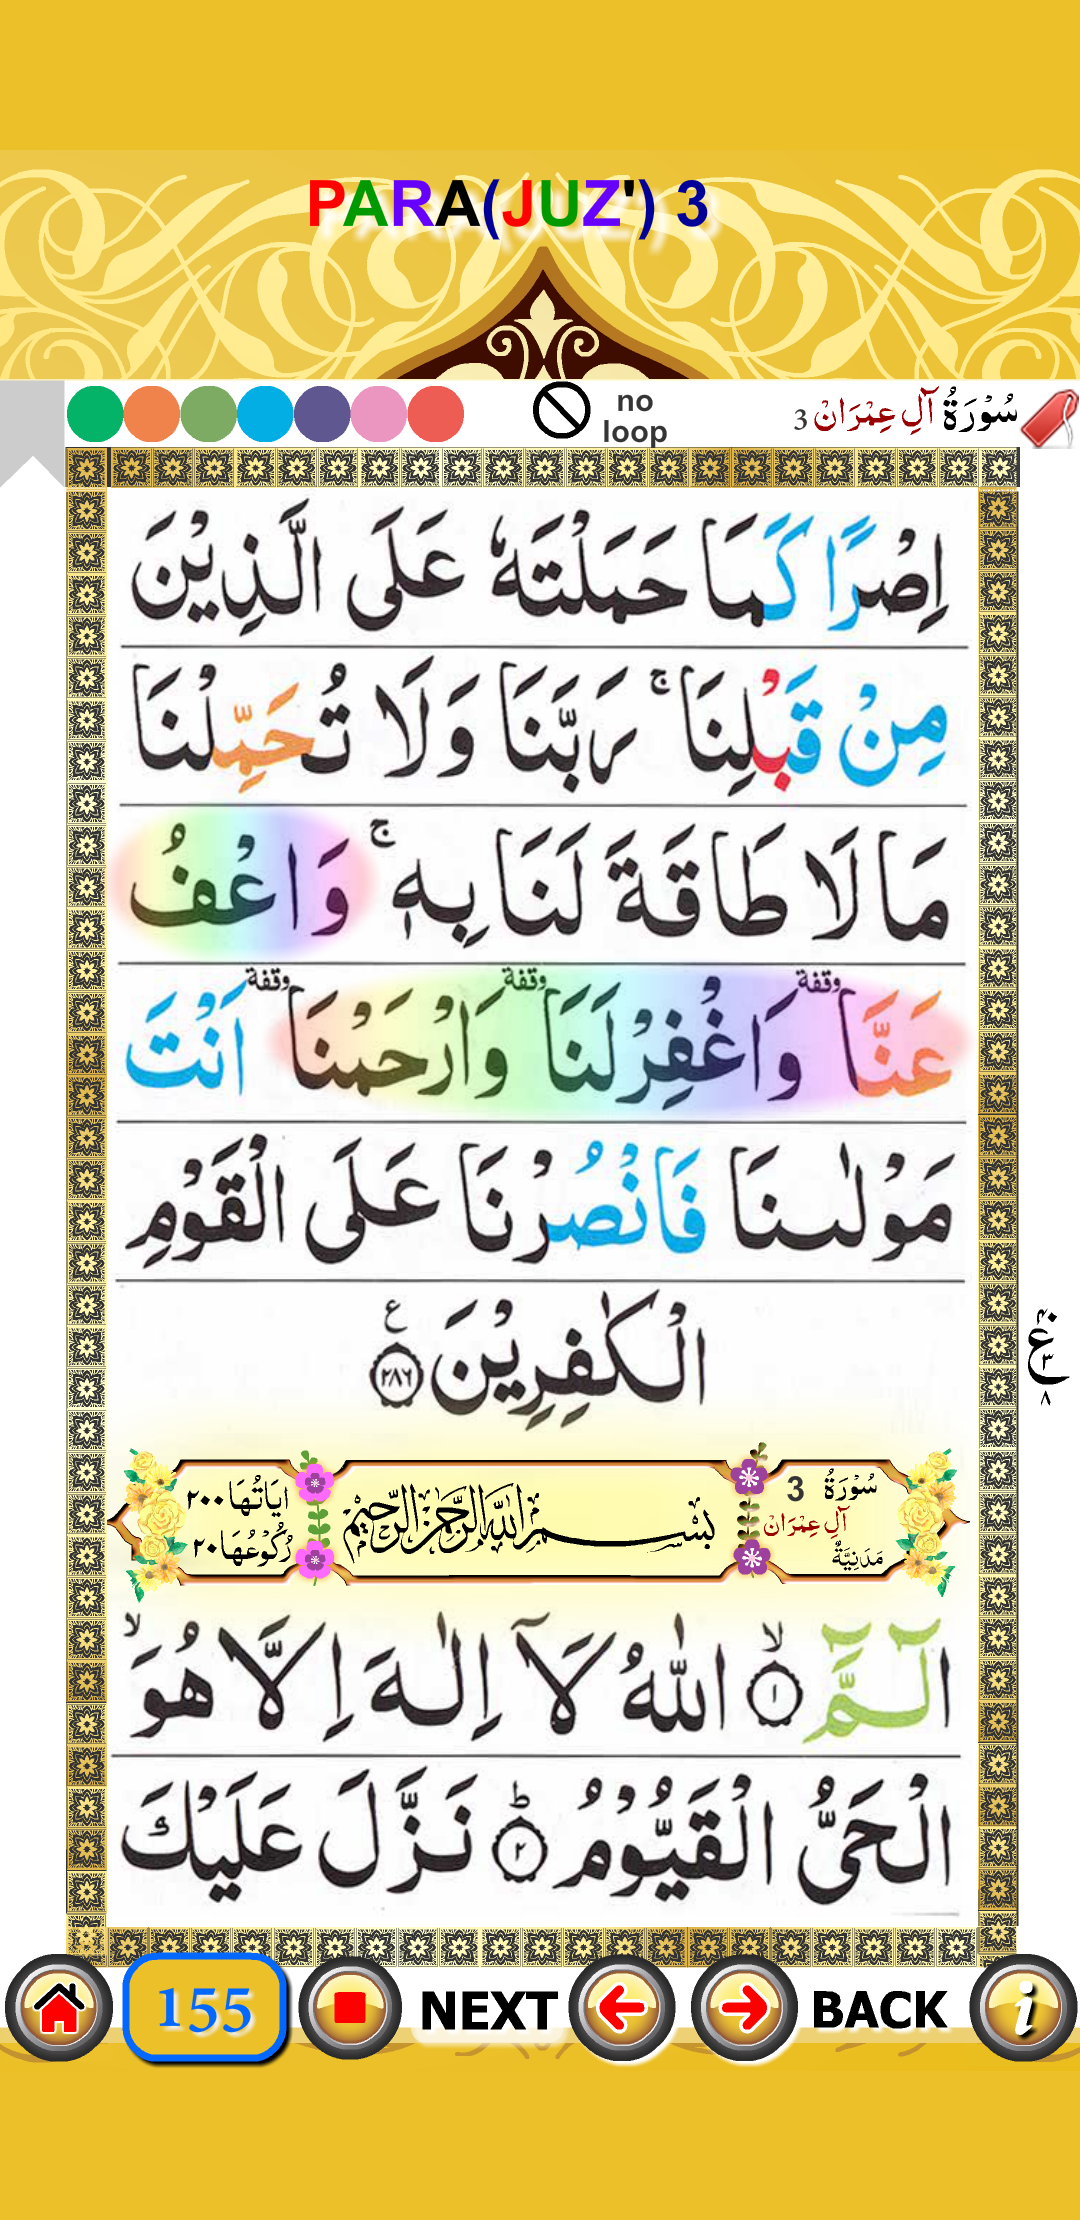 PARA(JUZ') 3
no
loop
سُوْرَةُ آلِ عِمْرَانْ 3
اِصْرًا كَمَا حَمَلْتَهٗ عَلَى الَّذِيْنَ
مِنْ قَبْلِنَا ۚ رَبَّنَا وَلَا تُحَمِّلْنَا
مَا لَا طَاقَةَ لَنَا بِهٖ ۚ وَاعْفُ
عَنَّا وقفة وَاغْفِرْ لَنَا وقفة وَارْحَمْنَا وقفة اَنْتَ
مَوْلٰىنَا فَانْصُرْنَا عَلَى الْقَوْمِ
الْكٰفِرِيْنَ ع ٢٨٦
ع ٣ ٨
سُوْرَةُ 3
آلِ عِمْرَانْ
مَدَنِيَّةٌ
بسم الله الرحمن الرحيم
اٰيَاتُهَا ٢٠٠
رُكُوْعُهَا ٢٠
الٓمّٓ ۙ ١ اللّٰهُ لَاۤ اِلٰهَ اِلَّا هُوَ ۙ
الْحَىُّ الْقَيُّوْمُ ؕ ٢ نَزَّلَ عَلَيْكَ
155
NEXT
BACK
i